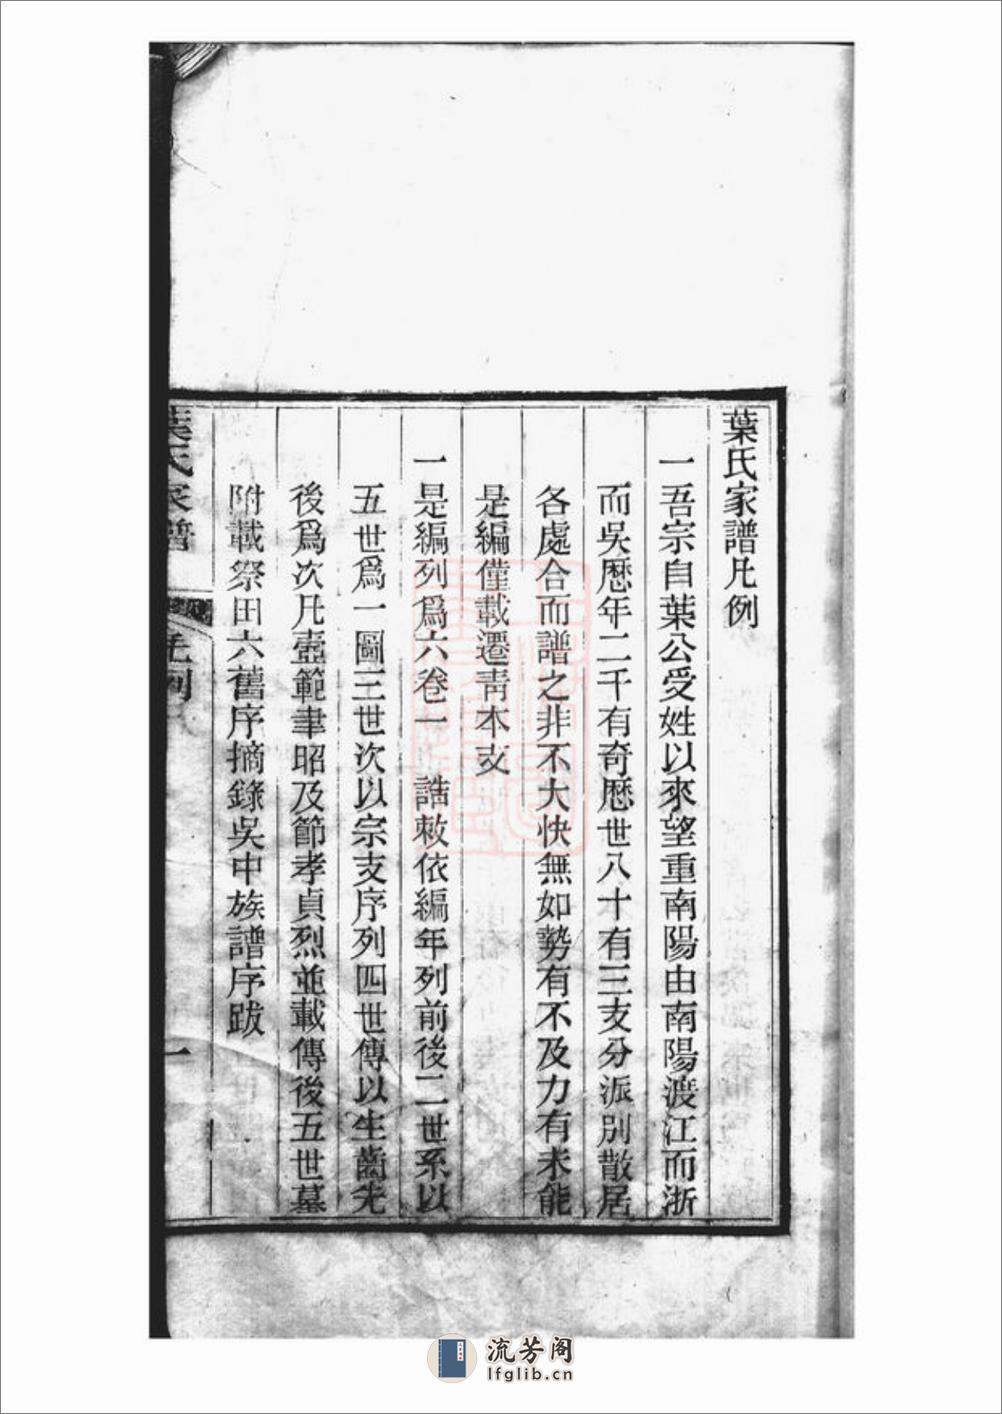 葉氏家譜凡例
一吾宗自葉公受姓以來望重南陽由南陽渡江而浙
而吳歷年二千有奇歷世八十有三支分派別散居
各處合而譜之非不大快無如勢有不及力有未能
是編僅載遷青本支
一是編列爲六卷一　誥敕依編年列前後二世系以
五世爲一圖三世次以宗支序列四世傳以生齒先
後爲次凡壼範聿昭及節孝貞烈並載傳後五世墓
附載祭田六舊序摘錄吳中族譜序跋
葉氏家譜
凡例
一
流芳阁
lfglib.cn